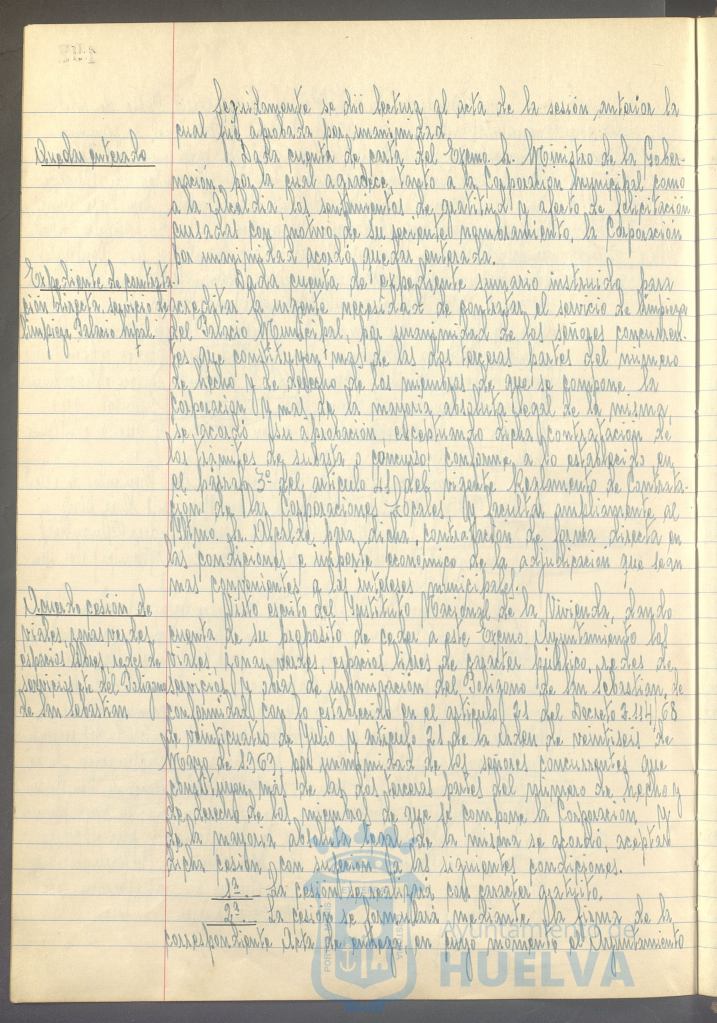 Seguidamente se dió lectura al acta de la sesión anterior la
cual fué aprobada por unanimidad.
Quedar enterado
Dada cuenta de carta del Excmo. Sr. Ministro de la Gober-
nación, por la cual agradece, tanto a la Corporación Municipal como
a la Alcaldía, los sentimientos de gratitud y afecto de felicitación
cursadas con motivo de su reciente nombramiento, la Corporación
por unanimidad acordó quedar enterada.
Expediente de contrata-
ción directa servicio de
limpieza Palacio Mpal.
Dada cuenta de expediente sumario instruido para
acreditar la urgente necesidad de contratar el servicio de limpieza
del Palacio Municipal, por unanimidad de los señores concurren-
tes que constituyen más de las dos terceras partes del número
de hecho y de derecho de los miembros de que se compone la
Corporación y más de la mayoría absoluta legal de la misma,
se acordó su aprobación, exceptuando dicha contratación de
los trámites de subasta o concurso conforme a lo establecido en
el párrafo 3º del artículo 41 del vigente Reglamento de Contrata-
ción de las Corporaciones Locales, y facultar ampliamente al
Iltmo. Sr. Alcalde para dicha contratación de forma directa en
las condiciones e importe económico de la adjudicación que sean
mas convenientes a los intereses municipales.
Acuerdo cesión de
viales, zonas verdes,
espacios libres, redes de
servicios etc del Polígono
de San Sebastián
Visto escrito del Instituto Nacional de la Vivienda, dando
cuenta de su propósito de ceder a este Excmo. Ayuntamiento los
viales, zonas verdes, espacios libres de carácter público, redes de
servicios y obras de urbanización del Polígono de San Sebastián, de
conformidad con lo establecido en el artículo 31 del Decreto 2.114/68
de veinticuatro de Julio y artículo 21 de la orden de veintiseis de
Mayo de 1.969 por unanimidad de los señores concurrentes que
constituyen más de las dos terceras partes del número de hecho y
de derecho de los miembros de que se compone la Corporación y
de la mayoría absoluta legal de la misma se acordó, aceptar
dicha cesión con sujeción a las siguientes condiciones.
1ª.- La cesión se realizará con carácter gratuito.
2ª.- La cesión se formulará mediante la firma de la
correspondiente Acta de entrega, en cuyo momento el Ayuntamiento
Ayuntamiento de
HUELVA